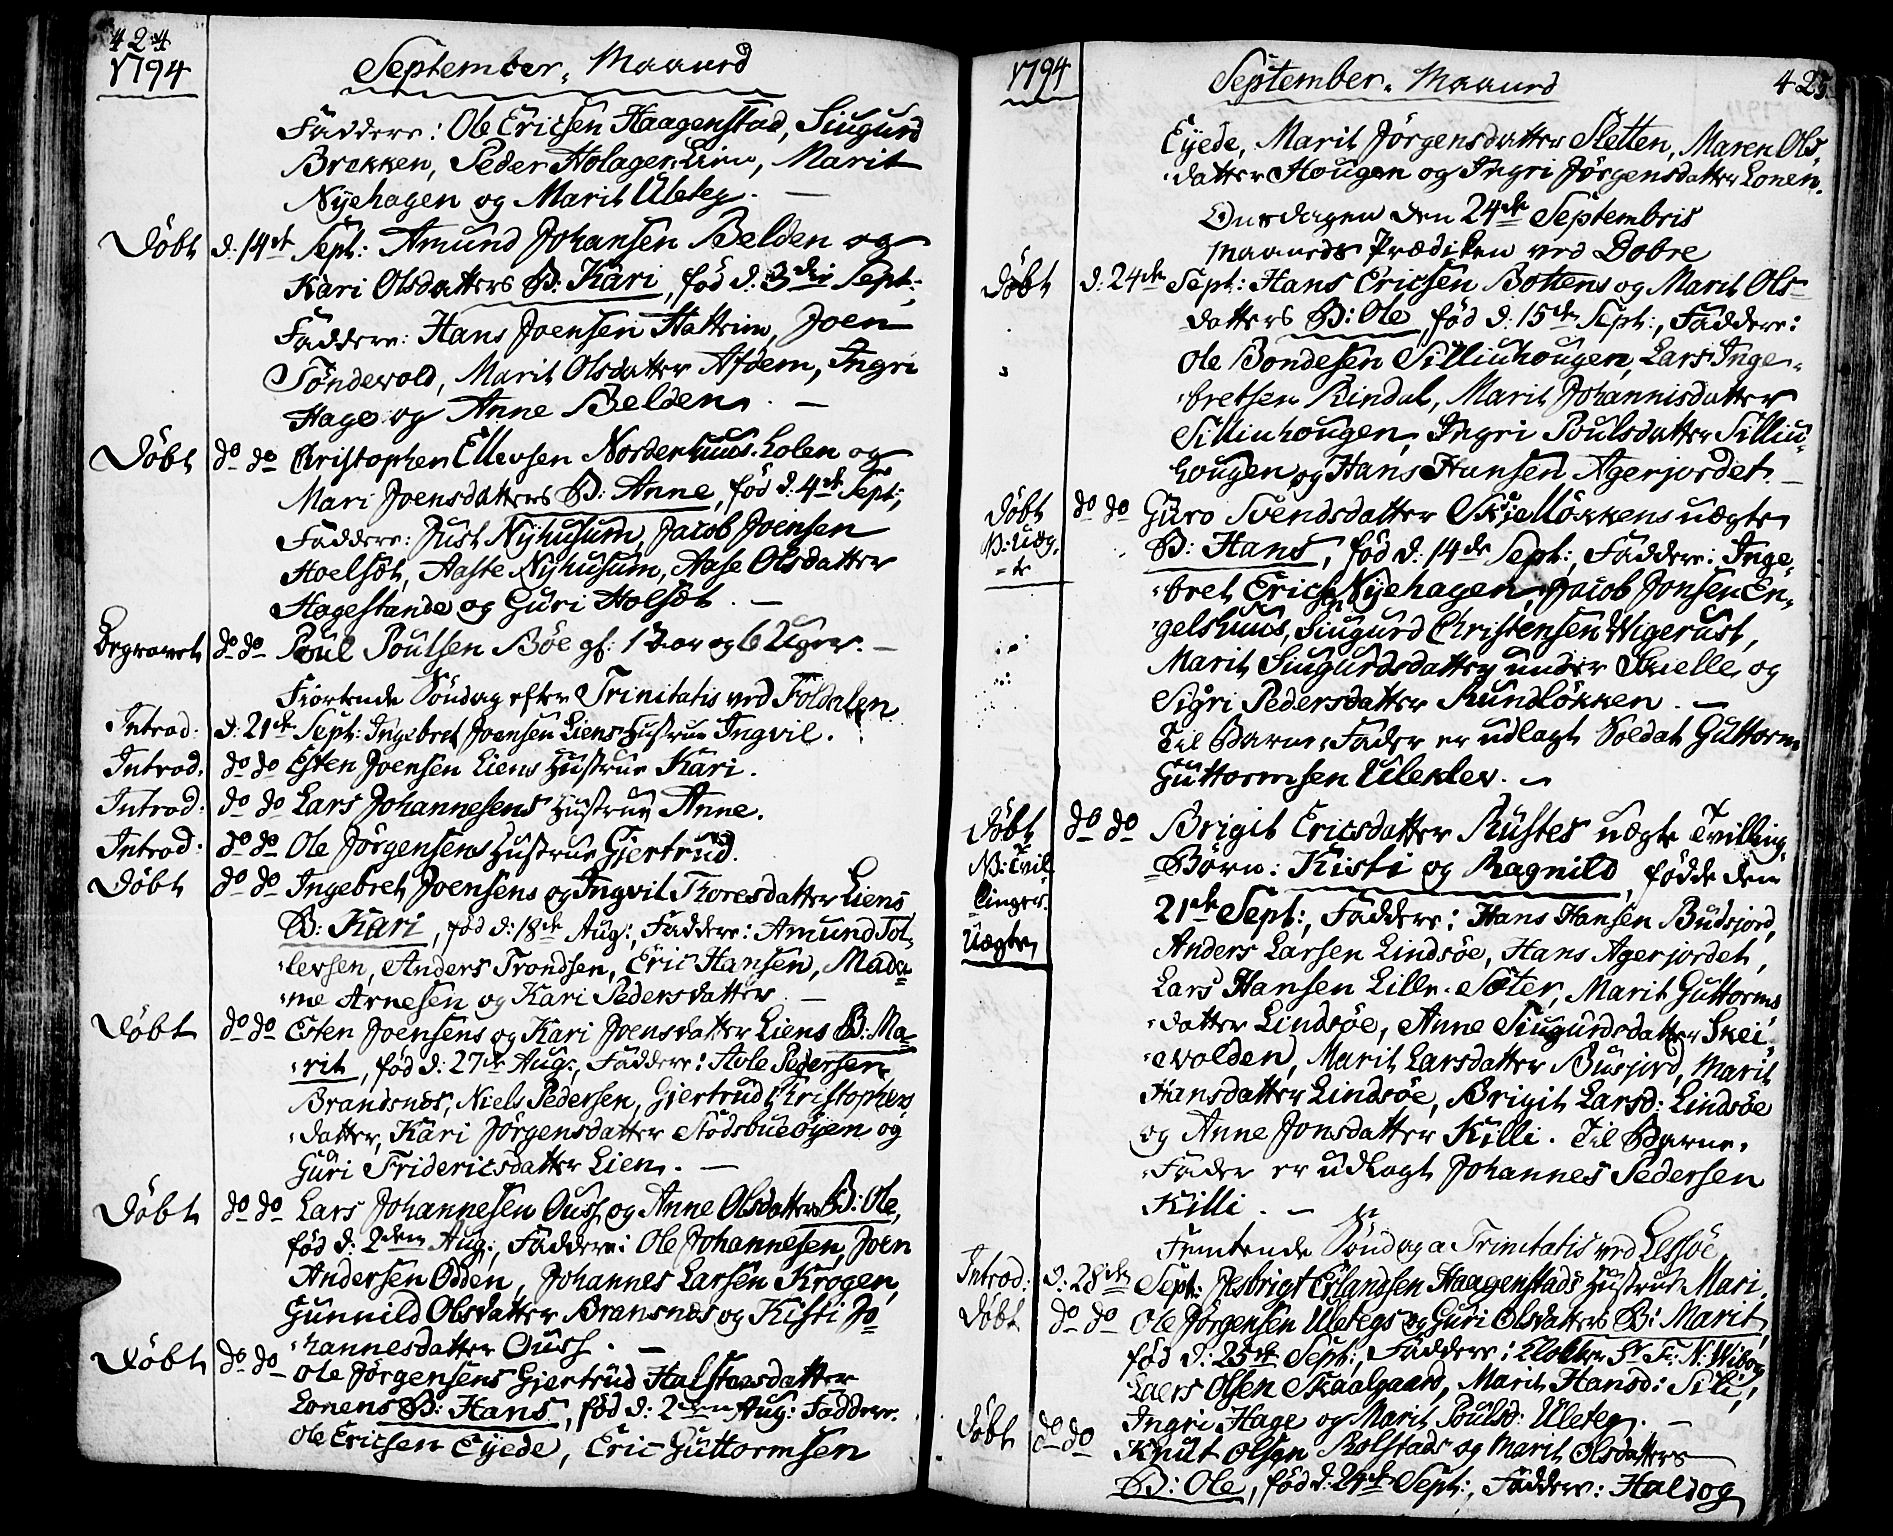 424
1794
September, Maaned
Faddere: Ole Ericsen Haagenstad, Siugurd
Brekken, Peder Holager, Lien, Marit
Nyehagen og Marit Uleteg. —
Döbt d: 14de Sept: Amund Johansen Belden og
Kari Olsdatters B: Kari, fød d: 3die Sept:,
Faddere: Hans Joensen Hattrim, Joen
Töndevold, Marit Olsdatter Afdem, Ingri
Hage og Anne Belden. —
Döbt do do Christopher Ellevsen Norderhuus-Lolen og
Mari Joensdatters B: Anne, fød d: 4de Sept:,
Faddere: Just Nyhusum, Jacob Joensen
Hoelsöt, Aaste Nyhusum, Aase Olsdatter
Hagestande og Guri Holsöt. —
Begravet do do Poul Poulsen Böe gl: 1 Aar og 6 Uger. —
Fiortende Söndag efter Trinitatis ved Foldalen
Introd: d: 21de Sept: Ingebret Joensen Liens Hustrue Ingvil.
Introd: do do Esten Joensen Liens Hustrue Kari.
Introd: do do Lars Johannesens Hustrue Anne.
Introd: do do Ole Jörgensens Hustrue Gjertrud.
Döbt do do Ingebret Joensens og Ingvil Thoresdatter Liens
B: Kari, fød d: 18de Aug:, Faddere: Amund Tol-
-levsen, Anders Trondsen, Eric Hansen, Mada-
-me Arnesen og Kari Pedersdatter. —
Döbt do do Esten Joensens og Kari Joensdatter Liens B: Ma-
-rit, fød d: 27de Aug:, Faddere: Hole Pedersen
Brandsnæs, Niels Pedersen, Gjertrud Kristophers
-datter, Kari Jörgensdatter Stödsbueöyen og
Guri Fridericsdatter Lien. —
Döbt do do Lars Johannesen Oush og Anne Olsdatters B: Ole,
fød d: 2den Aug:, Faddere: Ole Johannesen, Joen
Andersen Odden, Johannes Larsen Krogen,
Gunnild Olsdatter Bransnæs og Kisti Jo-
-hannesdatter Oush. —
Döbt do do Ole Jörgensens Gjertrud Halstensdatter
Lonens B: Hans, fød d: 2den Aug: Faddere.
Ole Ericsen Eyede, Eric Guttormsen
1794
September. Maaned
425
Eyede, Marit Jörgensdatter Sletten, Maren Ols-
-datter Hougen og Ingri Jörgensdatter Lonen.
Onsdagen den 24de Septembris
Maaneds Prædiken ved Dovre
Döbt d: 24de Sept: Hans Ericsen Bottens og Marit Ols-
datters B: Ole, fød d: 15de Sept:, Faddere:
Ole Bondesen Silliuhougen, Lars Inge-
-bretsen Rindal, Marit Johannisdatter
Silliuhougen, Ingri Poulsdatter Silliu-
hougen og Hans Hansen Agerjordet. —
Döbt do do Guro Svendsdatter Skjellökkens uægte
B: Uæg-
-te
B: Hans, fød d: 14de Sept:, Faddere: Inge-
-bret Erichsen Nyehagen, Jacob Jonsen En-
-gelshuus, Siugurd Christensen Wigerust,
Marit Siugurdsdatter under Skielle og
Sigri Pedersdatter Rundlökken. —
Til Barne-Fader er udlagt Soldat Guttorm
Guttormsen Ulekler. —
Döbt do do Brigit Ericsdatter Rustes uægte Tvilling-
B: Tvil
linger.
Uægte,
-Börn: Kisti og Ragnild, fødde den
21de Sept:, Faddere: Hans Hansen Budsjord,
Anders Larsen Lindsöe, Hans Agerjordet,
Lars Hansen Lille-Sæter, Marit Guttorms
-datter Lindsöe, Anne Siugurdsdatter Skei-
-evolden, Marit Larsdatter Busjord, Marit
Hansdatter Lindsöe, Brigit Larsd: Lindsöe
og Anne Jonsdatter Killi. Til Barne-
-Fader er udlagt Johannes Pedersen
Killi. —
Femtende Söndag a Trinitatis ved Lessöe
Introd: d: 28de Sept: Jesbrigt Erlandsen Haagenstads Hustrue Mari.
Döbt do do Ole Jörgensen Uletegs og Guri Olsdatters B: Marit,
fød d: 25de Sept:, Faddere: Klokker Sr F: N: Wiborg
Laers Olsen Skaalgaard, Marit Hansd: Sili,
Ingri Hage og Marit Poulsd: Uleteg. —
Döbt do do Knut Olsen Rolstads og Marit Olsdatters
B: Ole, fød d: 24de Sept:, Faddere: Haldog